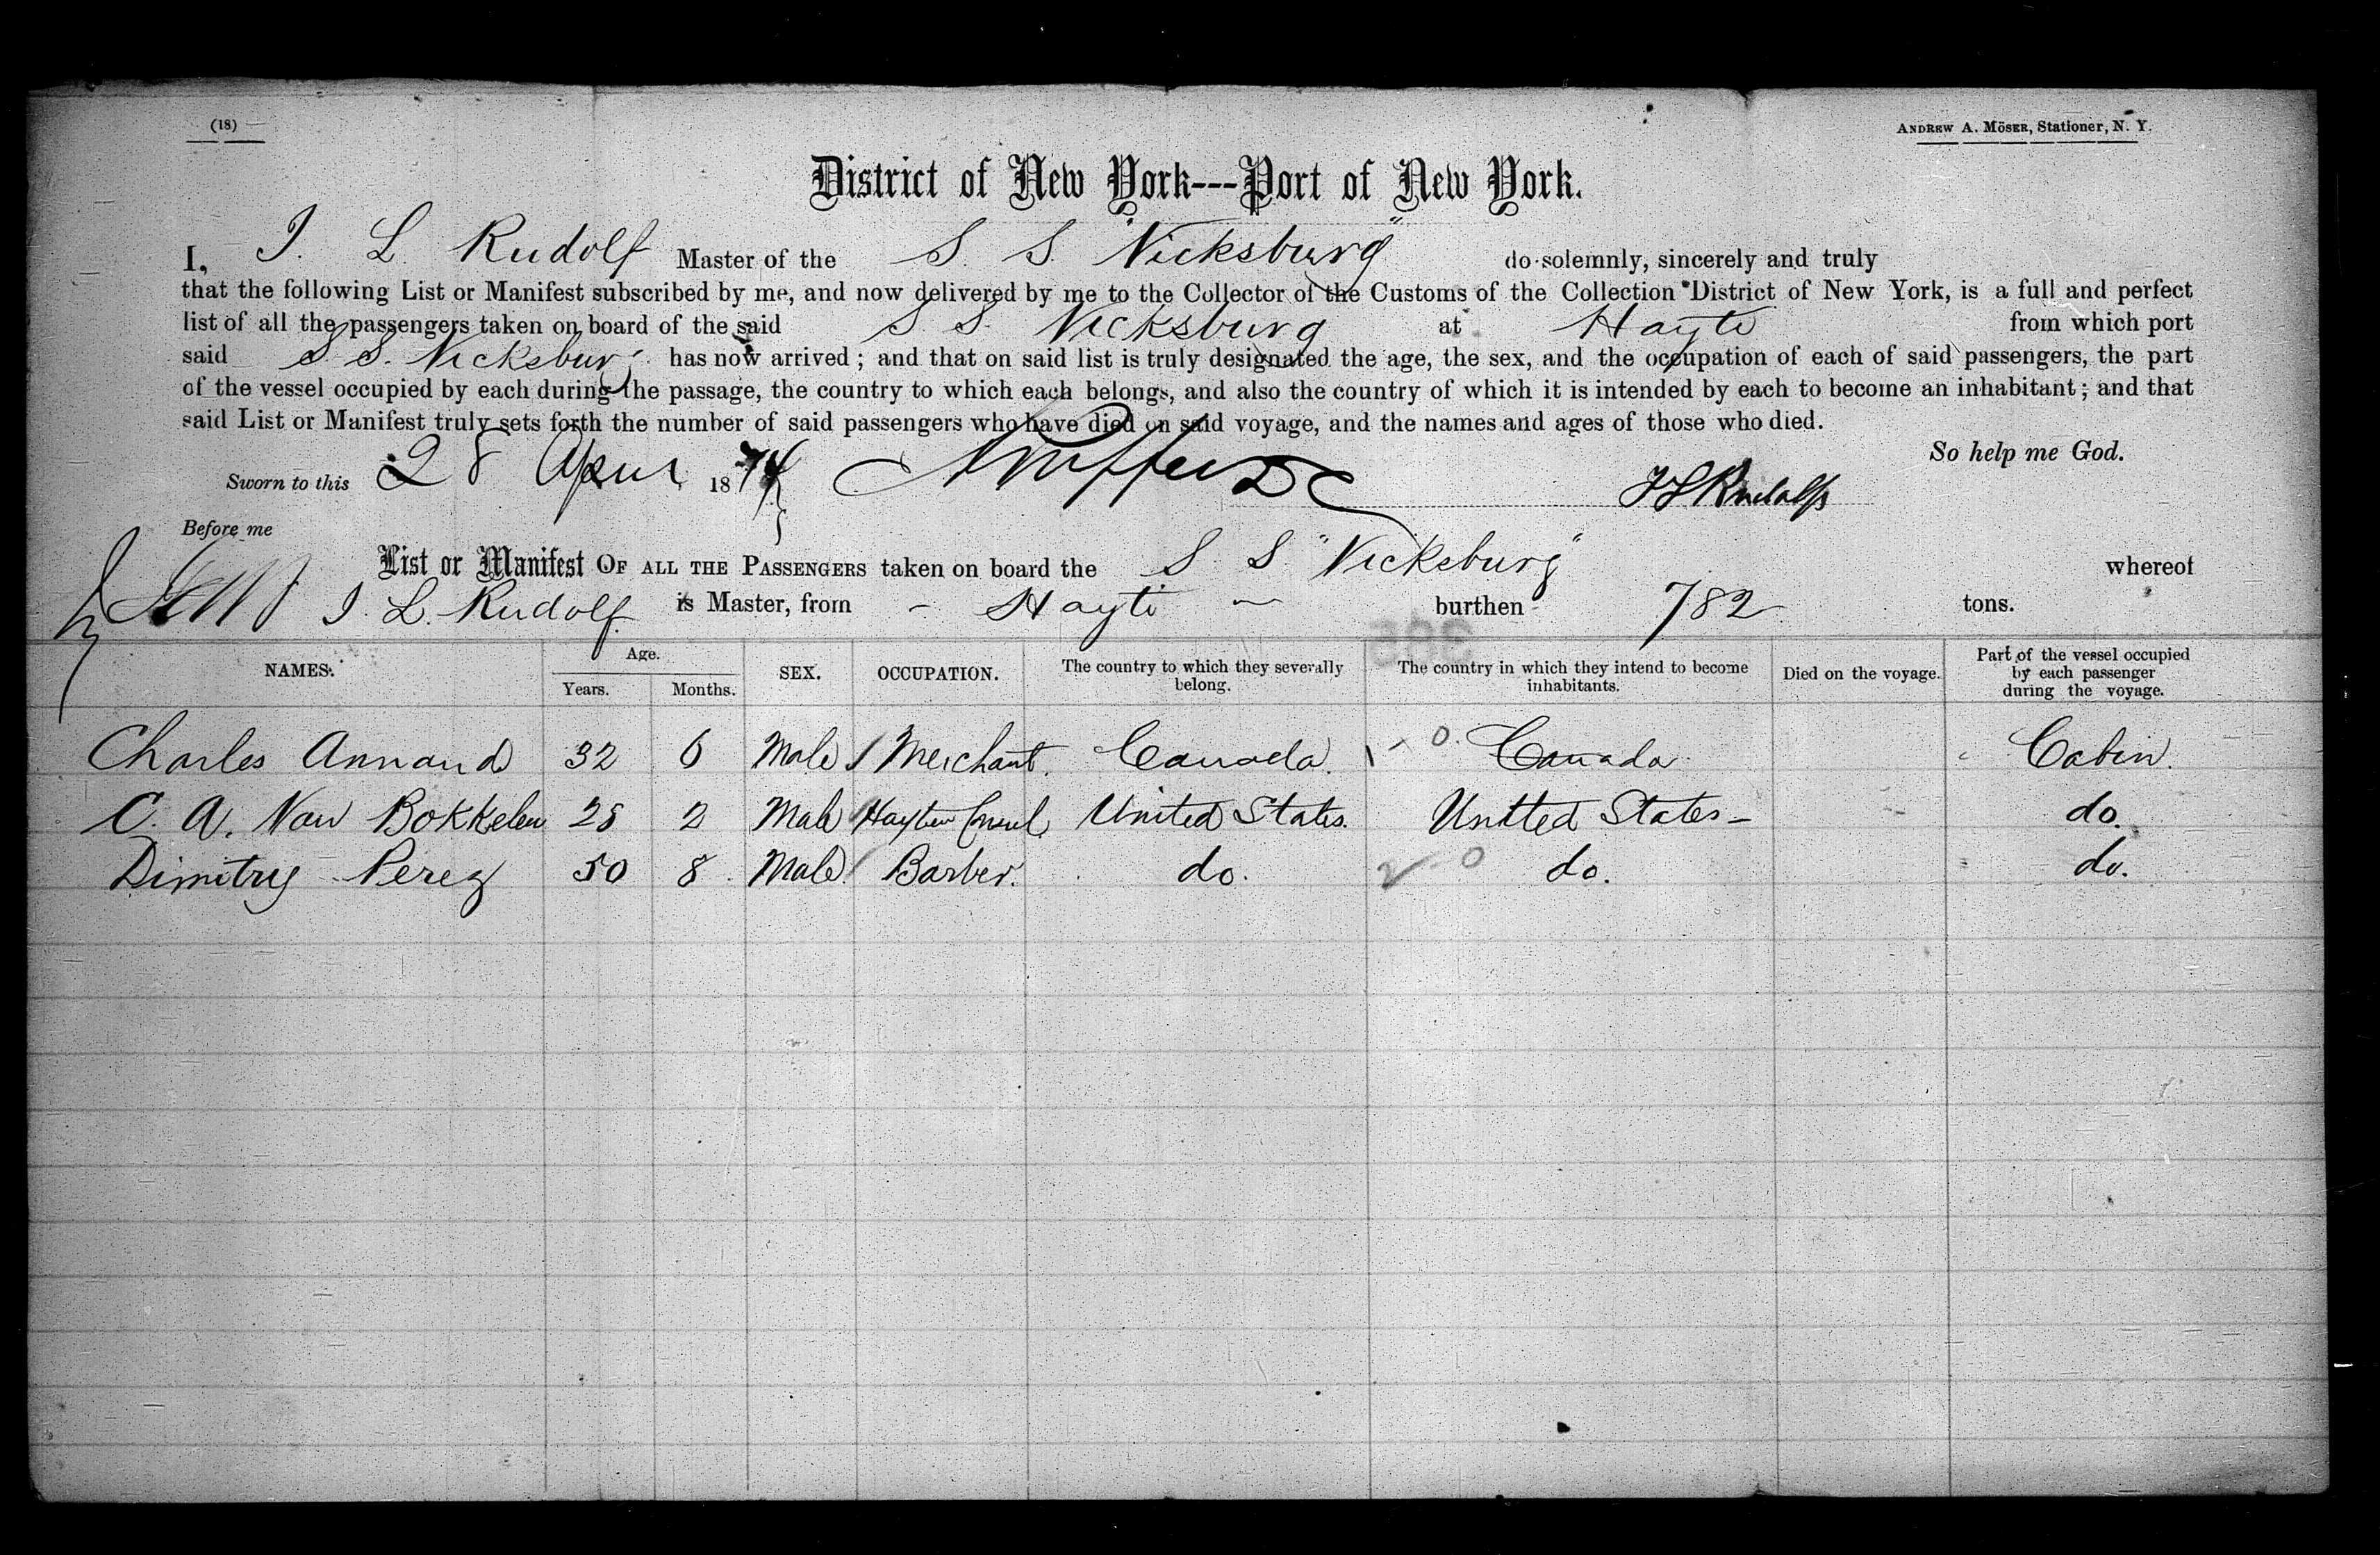 (18)
ANDREW A. MÖSER, Stationer, N. Y.
District of New York---Port of New York.
I, J. L. Rudolf Master of the S. S. "Vicksburg" do solemnly, sincerely and truly
that the following List or Manifest subscribed by me, and now delivered by me to the Collector of the Customs of the Collection District of New York, is a full and perfect
list of all the passengers taken on board of the said S S. Vicksburg at Hayti from which port
said S. S. Vicksburg has now arrived; and that on said list is truly designated the age, the sex, and the occupation of each of said passengers, the part
of the vessel occupied by each during the passage, the country to which each belongs, and also the country of which it is intended by each to become an inhabitant; and that
said List or Manifest truly sets forth the number of said passengers who have died on said voyage, and the names and ages of those who died.
So help me God.
Sworn to this 28 April 1874 J L Rudolf
Before me
List or Manifest OF ALL THE PASSENGERS taken on board the S. S. "Vicksburg" whereof
J. L. Rudolf is Master, from - Hayti - burthen 782 tons.
NAMES. Age. Years. Months. SEX. OCCUPATION. The country to which they severally belong. The country in which they intend to become inhabitants. Died on the voyage. Part of the vessel occupied by each passenger during the voyage.
Charles Annand 32 6 Male Merchant. Canada. 1 - 0. Canada Cabin.
C. A. Van Bokkelen 28 2 Male Haytien Consul United States. United States - do.
Dimitry Perez 50 8 Male Barber. do. 2 0 do. do.